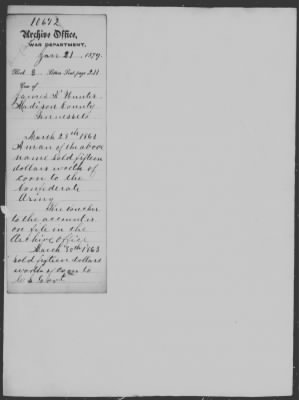 10672
Archive Office,
WAR DEPARTMENT,
Jan 21, 1879.
Book E page 211
Case of
James S Hunter
Madison County
Tennessee
March 29th 1863
A man of the above
name sold fifteen
dollars worth of
corn to the
Confederate
Army
The voucher
to the account is
on file in the
Archive Office
March 30th 1863
sold fifteen dollars
worth of corn to
C S Govt